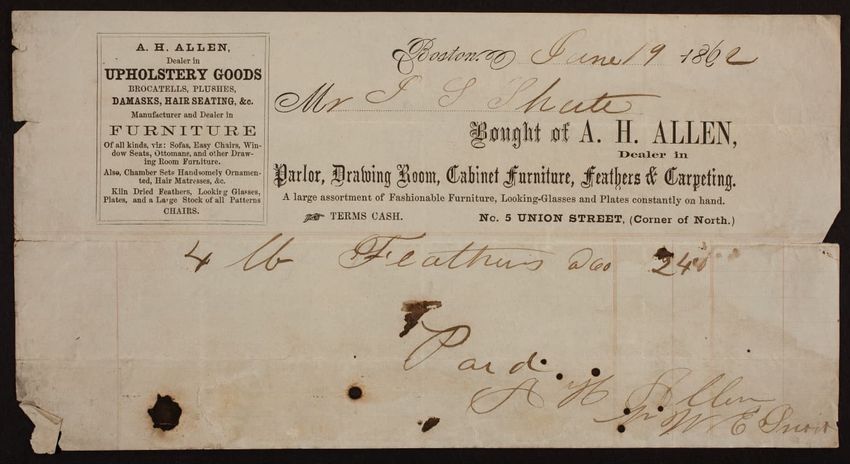 A. H. ALLEN,
Dealer in
UPHOLSTERY GOODS
BROCATELLS, PLUSHES,
DAMASKS, HAIR SEATING, &c.
Manufacturer and Dealer in
FURNITURE
Of all kinds, viz: Sofas, Easy Chairs, Win-
dow Seats, Ottomans, and other Draw-
ing Room Furniture.
Also, Chamber Sets Handsomely Ornamen-
ted, Hair Matresses, &c.
Kiln Dried Feathers, Looking Glasses,
Plates, and a Large Stock of all Patterns
CHAIRS.
Boston, June 19 1862
Mr J S Shute
Bought of A. H. ALLEN,
Dealer in
Parlor, Drawing Room, Cabinet Furniture, Feathers & Carpeting.
A large assortment of Fashionable Furniture, Looking-Glasses and Plates constantly on hand.
TERMS CASH. No. 5 UNION STREET, (Corner of North.)
4 lb Feathers 24
Paid
A H Allen
W E